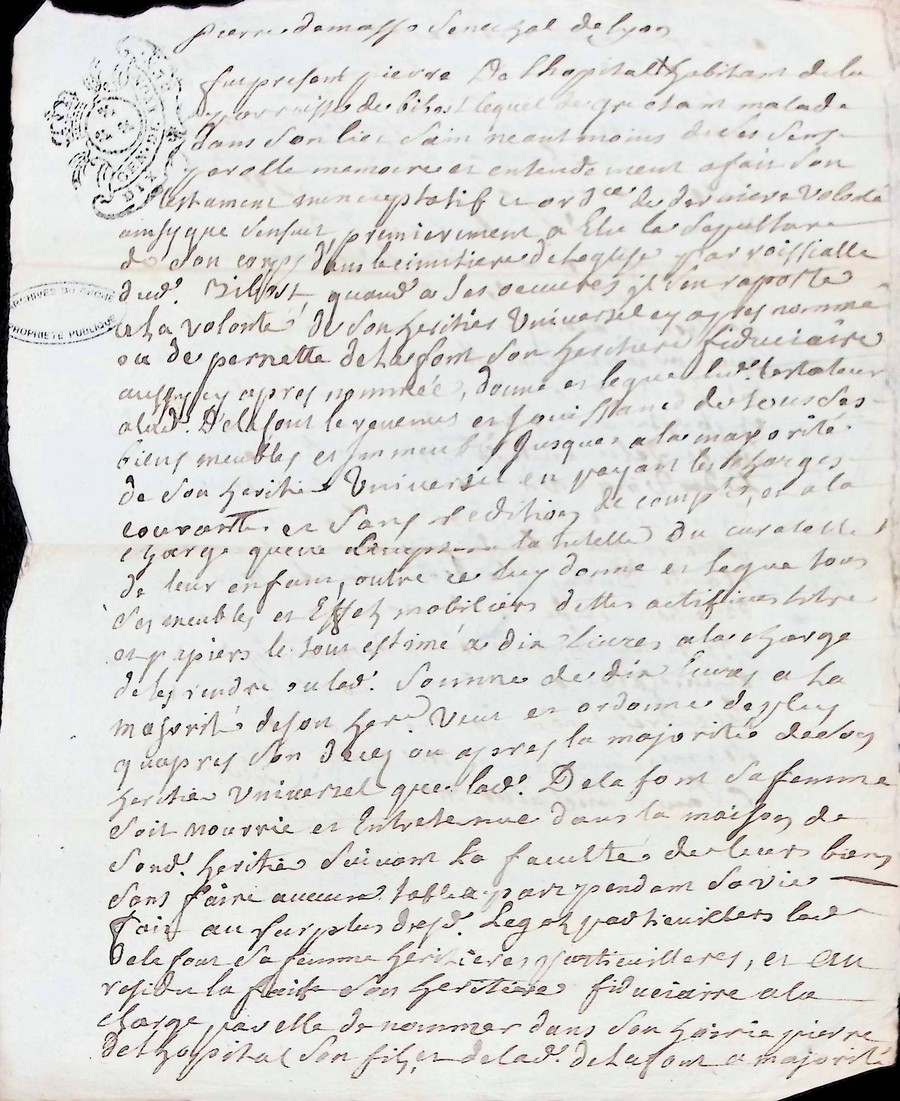 pierre damasse Senechal de lyon
fut present pierre De Lhopital habitant de la
parroisse de bibost lequel de gré etant malade
dans Son lict Sain neautmoins de Ses Sens
parolle memoire et entendement a fait Son
testament nuncupatif et ordce de derniere volonté
ainsy que Sensuit premierement a Elu la Sepulture
de Son corps dans le cimitiere de leglise parroissialle
dud. Bibost, quand a Ses oeuvres il S'en raporte
a La volonté de Son heritier Universel cy apres nommé
ou de pernette de La font Son heritiere fiduciaire
aussy cy apres nommée, donne et legue led. testateur
a lad. Delafont le revenus et jouissance de tous Ses
biens meubles et immeubles jusques a la majorité
de Son heritier Universel en payant les charges
courante et Sans reddition de compte, et a la
charge quelle la tutelle Ou curatelle
de leur enfant, outre ce luy donne et legue tous
Ses meubles et Effet mobiliers dettes actif tiltre
et papiers le tout estimé a dix Livres a la charge
de les rendre ou lad. Somme de dix livres a La
majorité de son herer Veut et ordonne de plus
quapres Son deces ou apres la majorité de Son
heritier Universel que lad. De la font Sa femme
Soit nourrie et Entretenue dans la maison de
Sond. heritier Suivant La faculté de leurs biens
Sans faire aucune table a part pendant Sa vie
Fait au Surplus desd. Legat particuilliers lad.
de la font Sa femme heritieres particuilleres, et au
residu la faitte Son heritiere fiduciaire a la
charge par elle de nommer dans Son hoirie pierre
de Lhopital Son fils et de lad. de la font a majorité
GEN. DE LYON
DIX
ARCHIVES DU RHONE
PROPRIÉTÉ PUBLIQUE